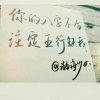 你的八字不合
注定五行缺我